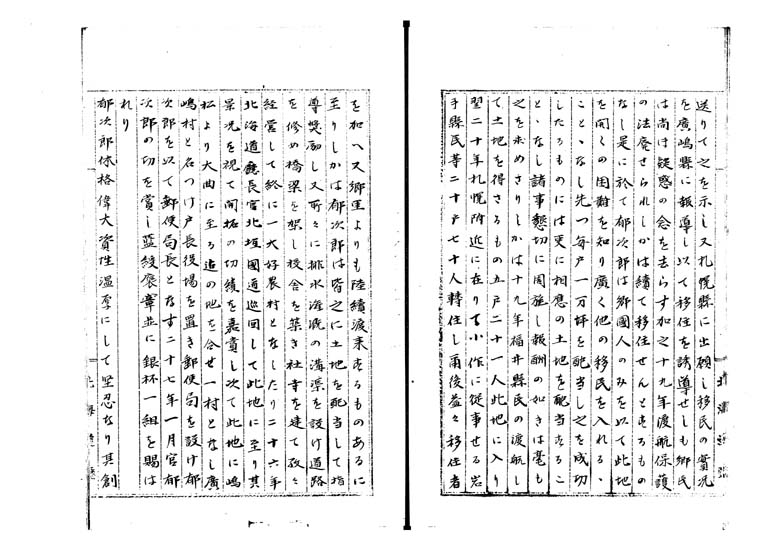 送りて之を示し又札幌縣に出願し移民の實況
を廣嶋縣に報導し以て移住を誘導せしも鄕民
は尚ほ疑惑の念を去らす加之十九年渡航保護
の法廃せられしかは續て移住せんとするもの
なし是に於て郁次郎は鄕國人のみを以て此地
を開くの困難を知り廣く他の移民を入れるゝ
ことゝなし先つ每戸一万坪を配当し之を成功
したるものには更に相應の土地を配当するこ
とゝなし諸事懇切に周旋し報酬の如きは毫も
之を求めさりしかは十九年福井縣民の渡航し
て土地を得さるもの五戸二十一人此地に入り
翌二十年札幌附近に在りて小作に従事せる岩
手縣民等二十戸七十人轉住し爾後益々移住者
を加へ又鄕里よりも陸續渡来するものあるに
至りしかは郁次郎は皆之に土地を配当して指
導奨励し又所々に排水溝渠を設け道路
を修め橋梁を架し校舎を築き社寺を建て孜々
経営して終に一大好農村となしたり二十六年
北海道廳長官北垣國道巡回して此地に至り其
景况を視て開拓の功績を嘉賞し次て此地に嶋
松より大曲に至る道の地を合せ一村となし廣
嶋村と名つけ戸長役場を置き郵便局を設け郁
次郎を以て郵便局長となす二十七年一月官郁
次郎の功を賞し藍綬褒章並に銀杯一組を賜は
れり
郁次郎体格偉大資性温厚にして堅忍なり其創